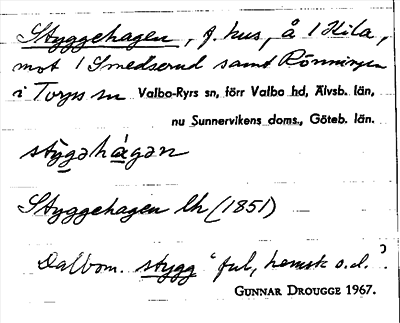 Styggehagen, f. hus, å 1 Hila,
mot 1 Smedserud samt Rönningen
i Torps sn Valbo-Ryrs sn, förr Valbo hd, Älvsb. län,
nu Sunnervikens doms., Göteb. län.
stygəhagən
Styggehagen lh (1851)
Dalbom. stygg "ful, hemsk o.d."?
GUNNAR DROUGGE 1967.